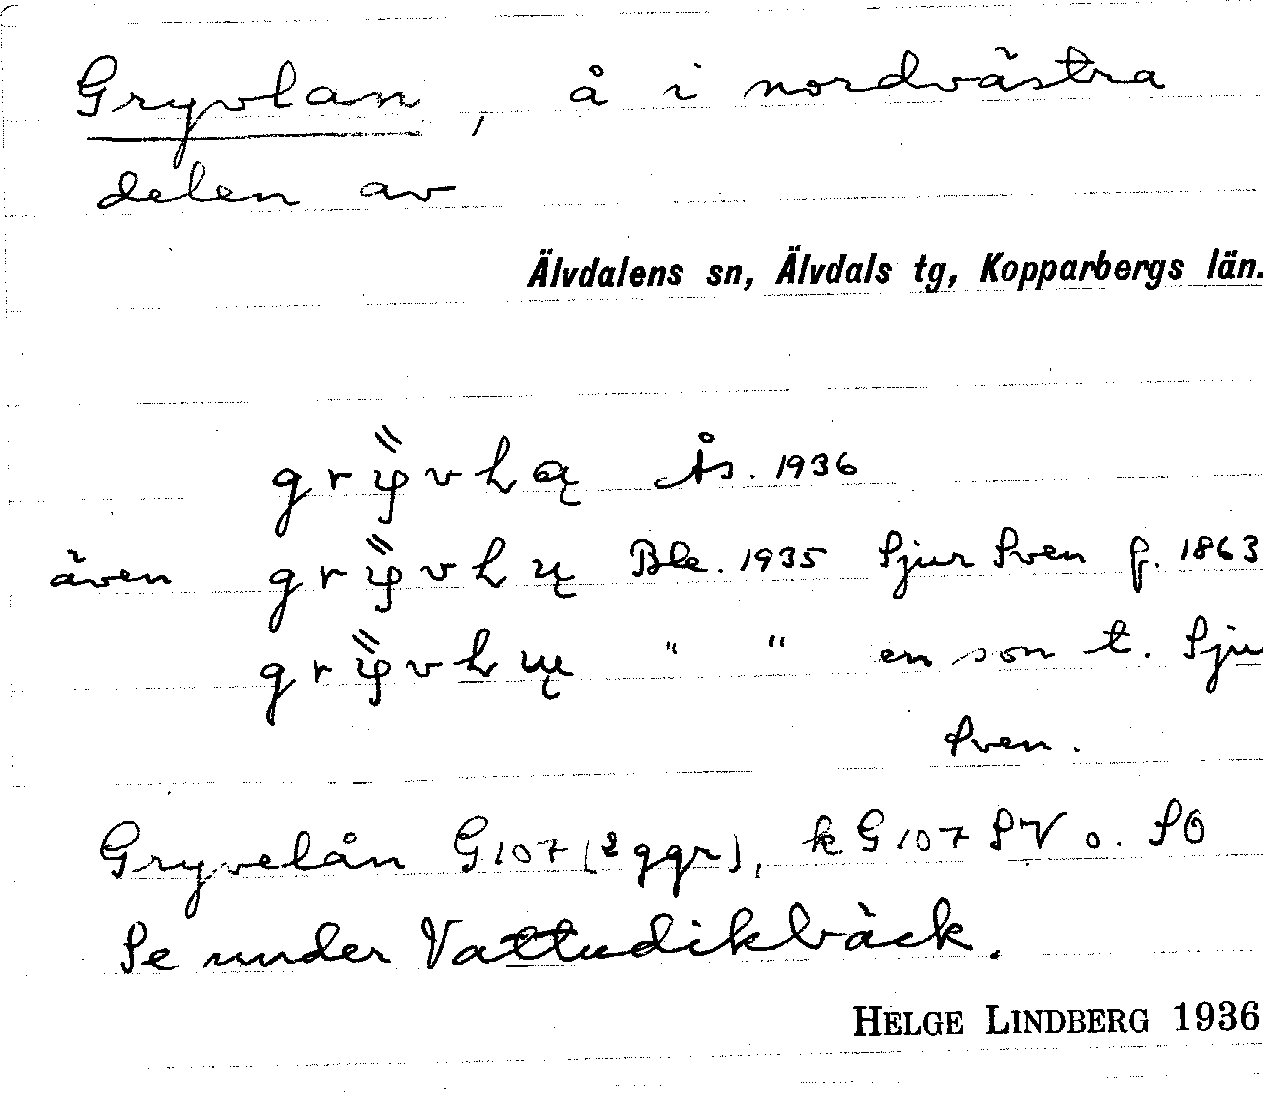 Gryvlan, å i nordvästra
delen av
Älvdalens sn, Älvdals tg, Kopparbergs län.
Ås. 1936
även Ble. 1935 Sjur Sven f. 1863
" " en son t. Sju
Sven.
Gryvelån G107 (2 ggr), k G107 SV o. SO
Se under Vattudikbäck.
HELGE LINDBERG 1936